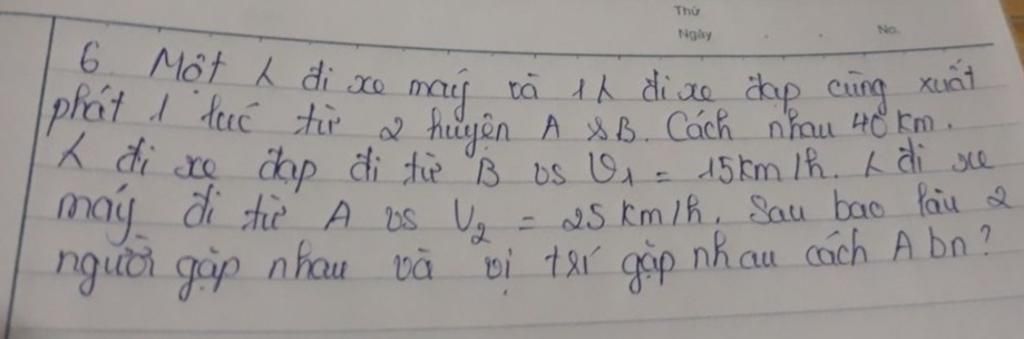 Thứ
Ngày
No.
6. Một λ đi xe máy và 1λ đi xe đạp cùng xuất
phát 1 lúc từ 2 huyện A & B. Cách nhau 40 km.
λ đi xe đạp đi từ B vs V₁ = 15km/h. λ đi xe
máy đi từ A vs V₂ = 25 km/h. Sau bao lâu 2
người gặp nhau và vị trí gặp nhau cách A bn?